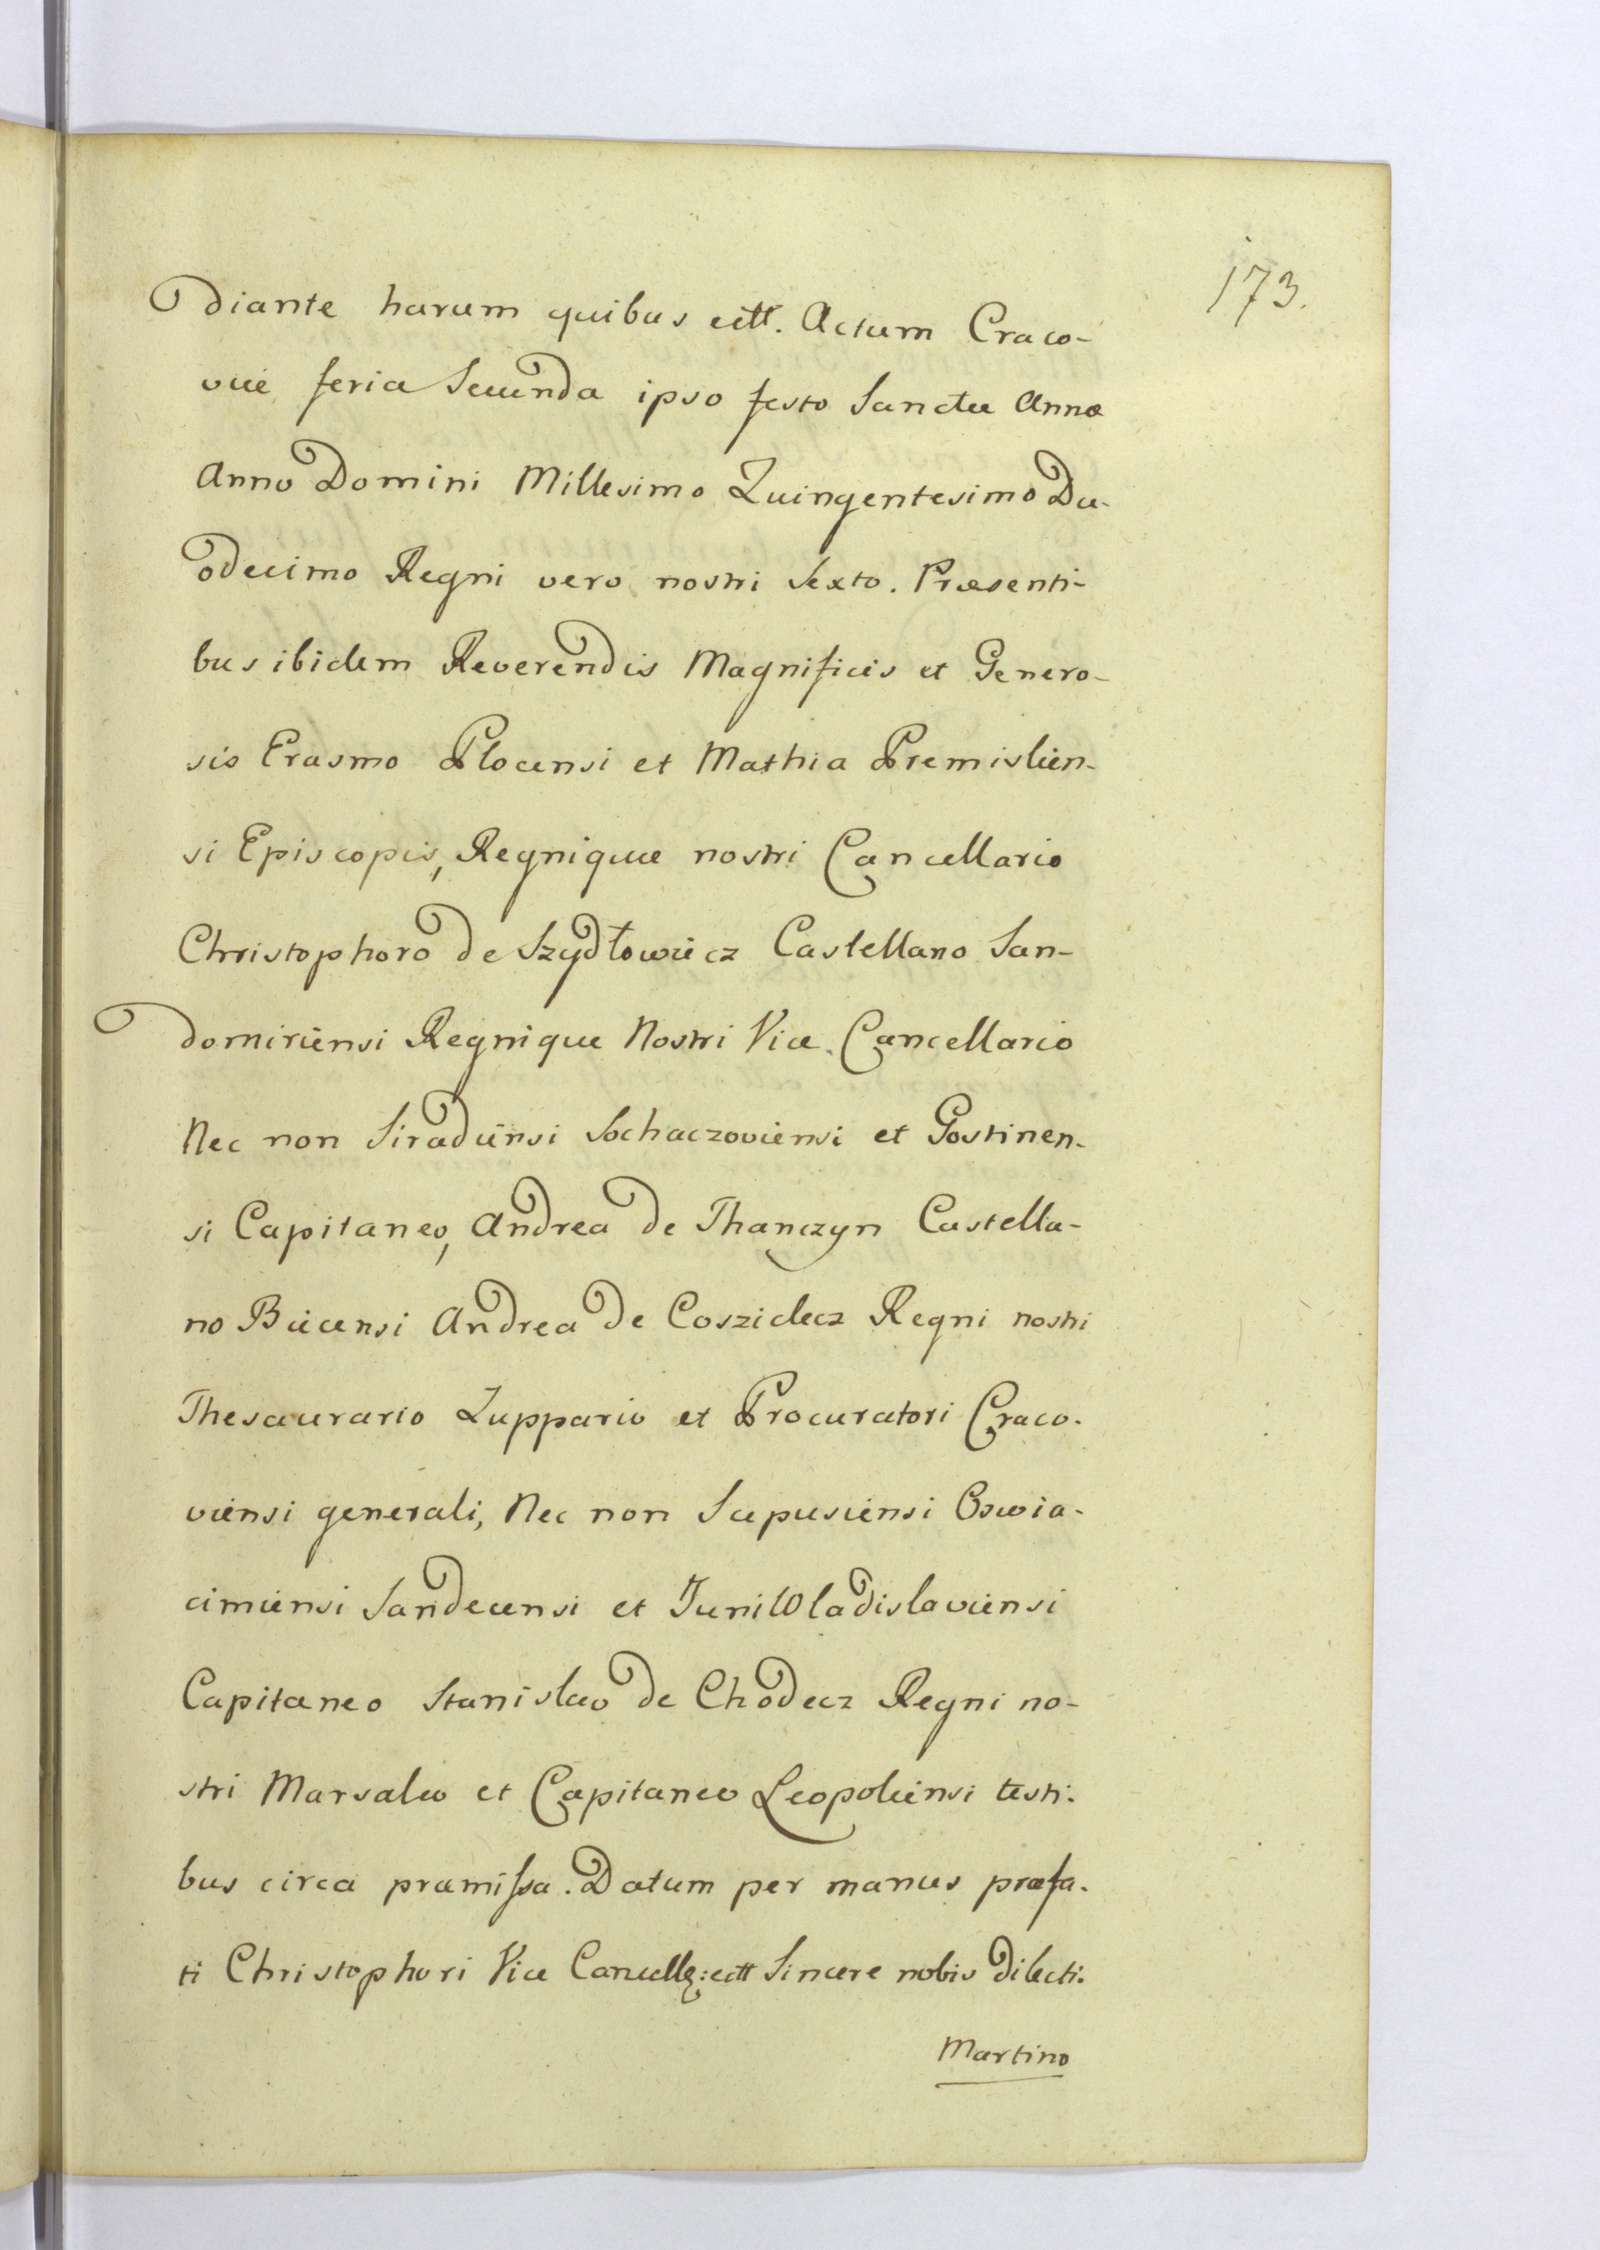 173.
diante harum quibus ectt. Actum Craco-
viæ feria Secunda ipso festo Sanctæ Annæ
Anno Domini Millesimo Quingentesimo Du-
odecimo Regni vero nostri Sexto. Præsenti-
bus ibidem Reverendis Magnificis et Genero-
sis Erasmo Plocensi et Mathia Premislien-
si Episcopis, Regnique nostri Cancellario
Christophoro de Szydłowiecz Castellano San-
domiriensi Regnique Nostri Vice-Cancellario
Nec non Siradiensi Sochaczoviensi et Gostinen-
si Capitaneo, Andrea de Thanczyn Castella-
no Biecensi Andrea de Coszielecz Regni nostri
Thesaurario Zuppario et Procuratori Craco-
viensi generali, Nec non Scepusiensi Oswia-
cimiensi Sandecensi et JuniWladislaviensi
Capitaneo Stanislao de Chodecz Regni no-
stri Marsalco et Capitaneo Leopoliensi testi-
bus circa præmissa. Datum per manus præfa-
ti Christophori Vice Cancell: ectt Sincere nobis Dilecti.
Martino